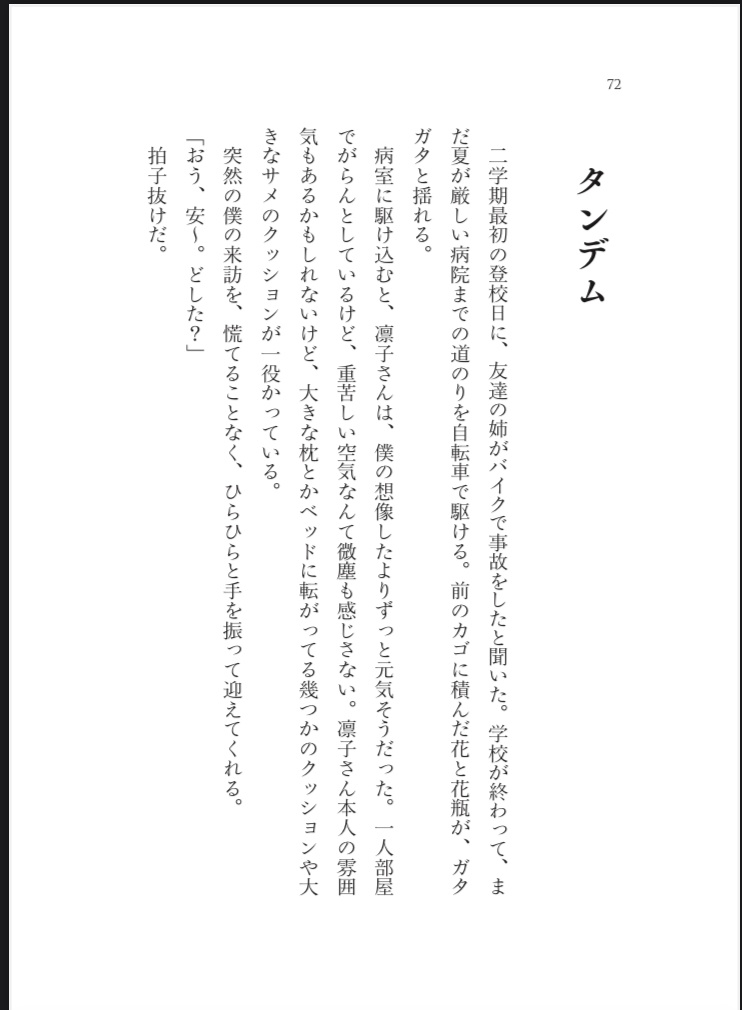 72
タンデム
二学期最初の登校日に、友達の姉がバイクで事故をしたと聞いた。学校が終わって、ま
だ夏が厳しい病院までの道のりを自転車で駆ける。前のカゴに積んだ花と花瓶が、ガタ
ガタと揺れる。
病室に駆け込むと、凛子さんは、僕の想像したよりずっと元気そうだった。一人部屋
でがらんとしているけど、重苦しい空気なんて微塵も感じさない。凛子さん本人の雰囲
気もあるかもしれないけど、大きな枕とかベッドに転がってる幾つかのクッションや大
きなサメのクッションが一役かっている。
突然の僕の来訪を、慌てることなく、ひらひらと手を振って迎えてくれる。
「おう、安〜。どした？」
拍子抜けだ。